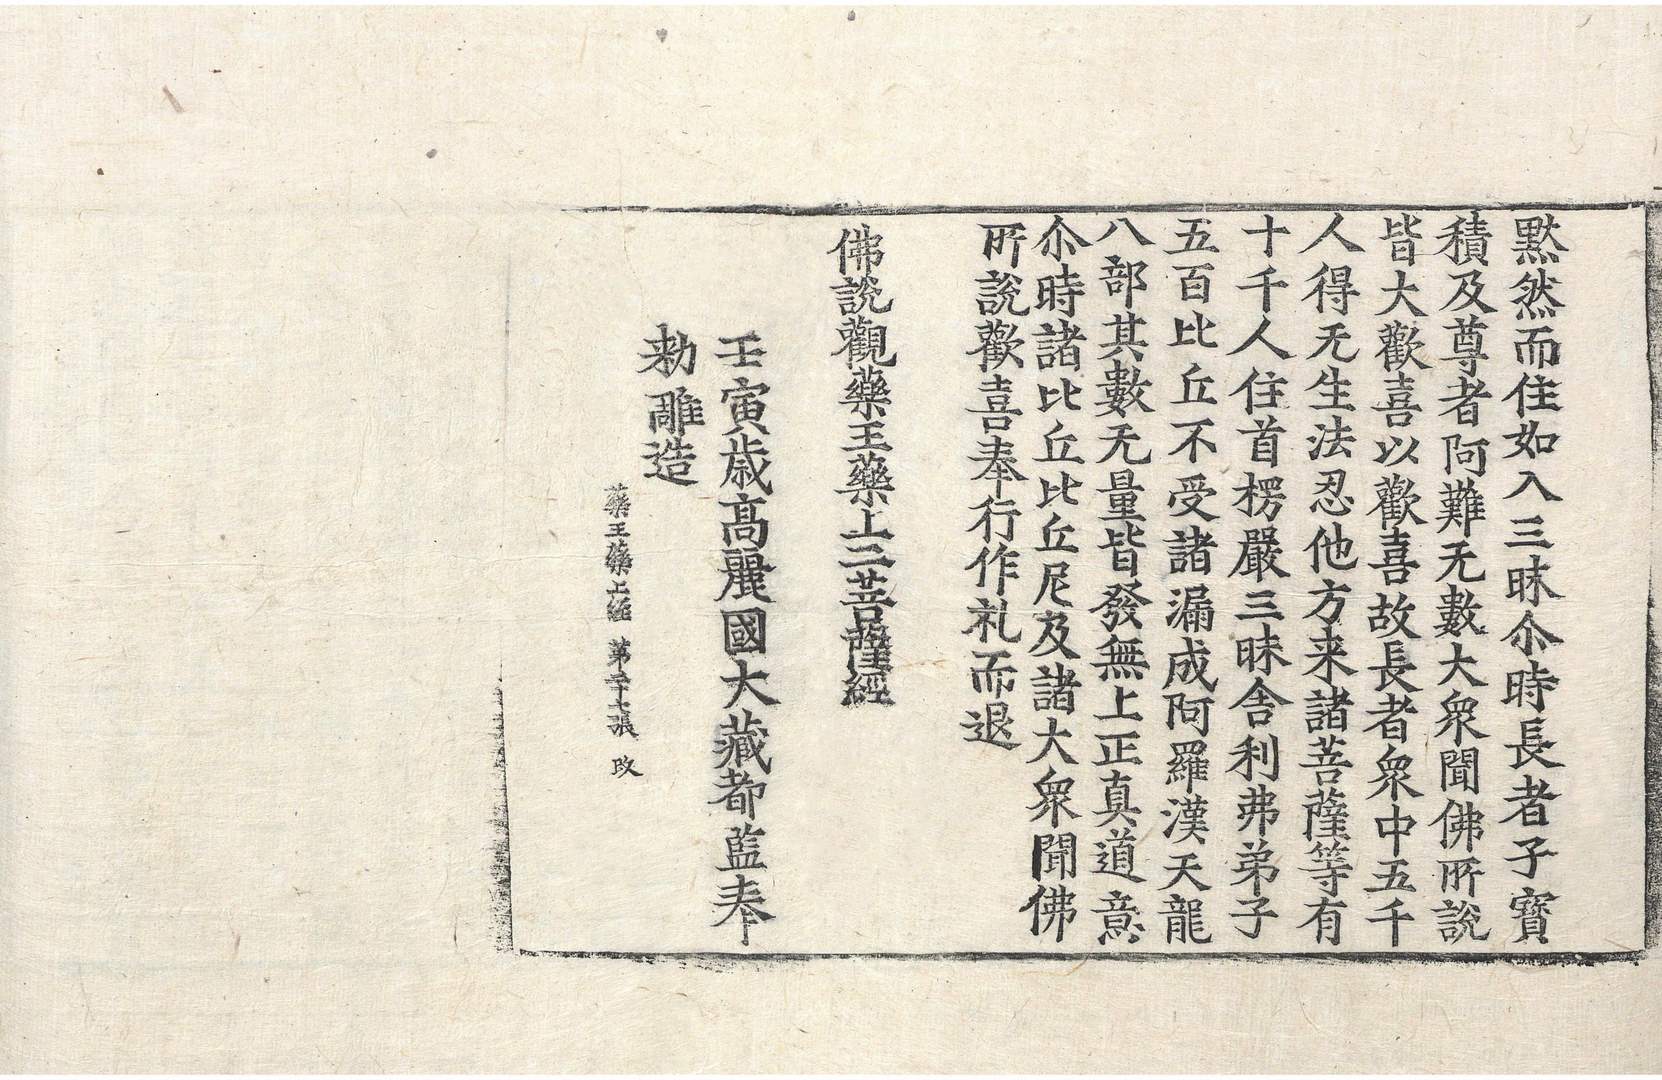 黙然而住如入三昧尒時長者子寶
積及尊者阿難无數大衆聞佛所說
皆大歡喜以歡喜故長者衆中五千
人得无生法忍他方来諸菩薩等有
十千人住首楞嚴三昧舍利弗弟子
五百比丘不受諸漏成阿羅漢天龍
八部其數无量皆發無上正真道意
尒時諸比丘比丘尼及諸大衆聞佛
所說歡喜奉行作礼而退
佛說觀藥王藥上二菩薩經
壬寅歳髙麗國大藏都監奉
勑雕造
藥王藥上經 第二十六張